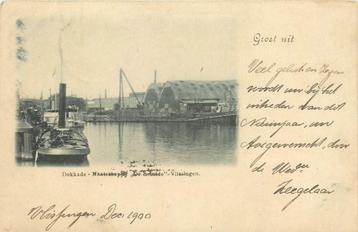 Groet uit
Veel geluk en zegen
wordt u bij het
intreden van dit
Nieuwjaar, uw
toegewenscht, door
de Wed.
Zeegelaar
Dokkade - Maatschappij "De Schelde" - Vlissingen.
Vlissingen Dec. 1900